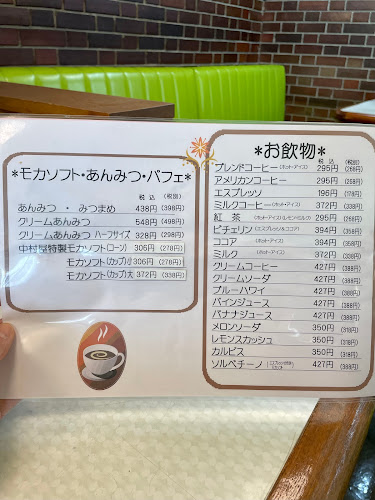 *モカソフト・あんみつ・パフェ*
税込 (税別)
あんみつ ・ みつまめ 438円 (398円)
クリームあんみつ 548円 (498円)
クリームあんみつ ハーフサイズ 328円 (298円)
中村屋特製モカソフト(コーン) 306円 (278円)
モカソフト(カップ)小 306円 (278円)
モカソフト(カップ)大 372円 (338円)
*お飲物*
税込 (税別)
ブレンドコーヒー(ホット・アイス) 295円 (268円)
アメリカンコーヒー 295円 (268円)
エスプレッソ 195円 (178円)
ミルクコーヒー(ホット・アイス) 372円 (338円)
紅 茶 (ホット・アイス)(レモン・ミルク) 295円 (268円)
ピチェリン(エスプレッソ&ココア) 394円 (358円)
ココア (ホット・アイス) 394円 (358円)
ミルク (ホット・アイス) 372円 (338円)
クリームコーヒー 427円 (388円)
クリームソーダ 427円 (388円)
ブルーハワイ 427円 (388円)
パインジュース 427円 (388円)
バナナジュース 427円 (388円)
メロンソーダ 350円 (318円)
レモンスカッシュ 350円 (318円)
カルピス 350円 (318円)
ソルベチーノ 427円 (388円)